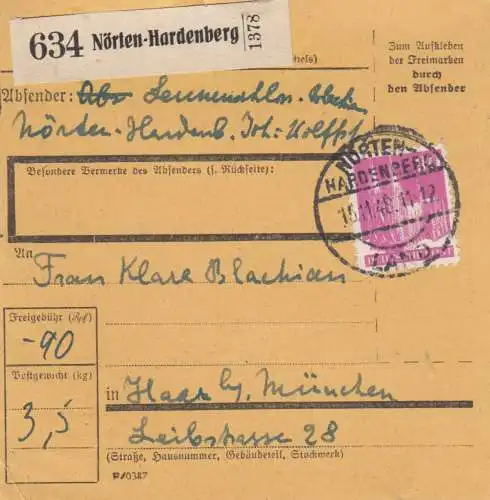 634 Nörten-Hardenberg
1378
Zum Aufkleben
der Freimarken
durch
den Absender
Absender:
Nörten-Hardenb.
Besondere Vermerke des Absenders (s. Rückseite):
NÖRTEN-
HARDENBERG
An
Frau Klara Blachian
Freigebühr (Rpf)
-90
Postgewicht (kg)
3,5
in Haar b. München
Leibstrasse 28
(Straße, Hausnummer, Gebäudeteil, Stockwerk)